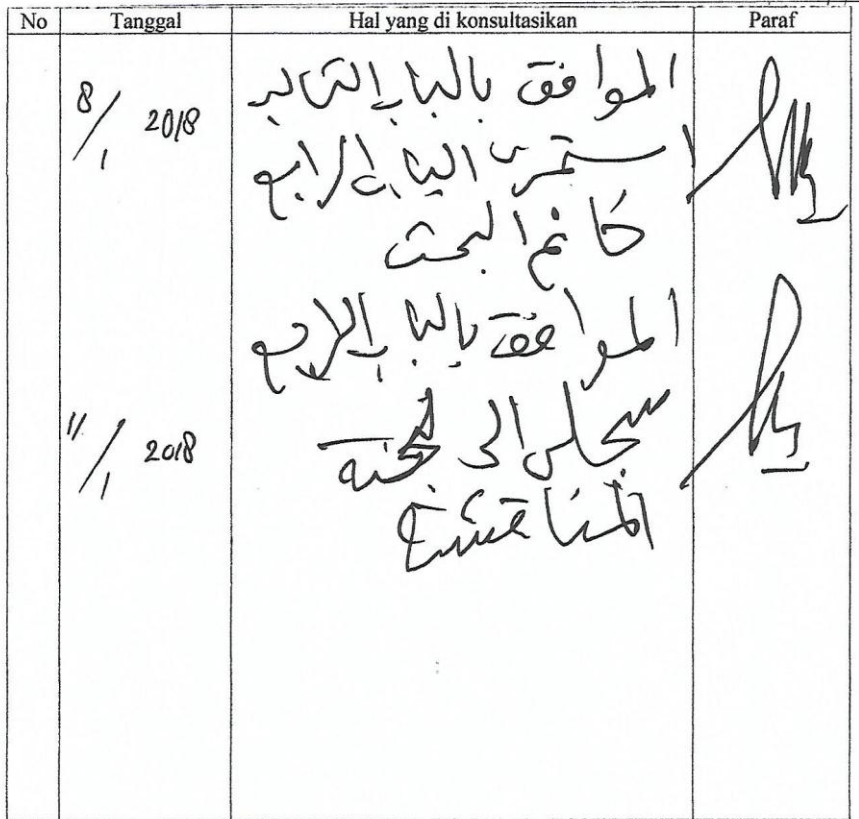 No Tanggal Hal yang di konsultasikan Paraf
8/1 2018
الموافق بالباب الثالث
استمرى الباب الرابع
خاتم البحث
11/1 2018
الموافق بالباب الرابع
سجلى الى لجنة
المناقشة